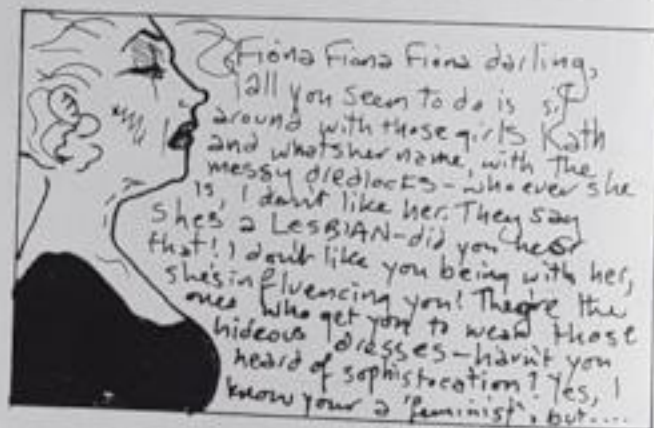 Fiona Fiona Fiona darling,
all you seem to do is sit
around with those girls Kath
and whatshername, with the
messy dredlocks - whoever she
is, I don't like her. They say
she's a LESBIAN - did you hear
that! I don't like you being with her,
she's influencing you! They're the
ones who get you to wear those
hideous dresses - havn't you
heard of sophistocation? Yes, I
know your a 'feminist', but....